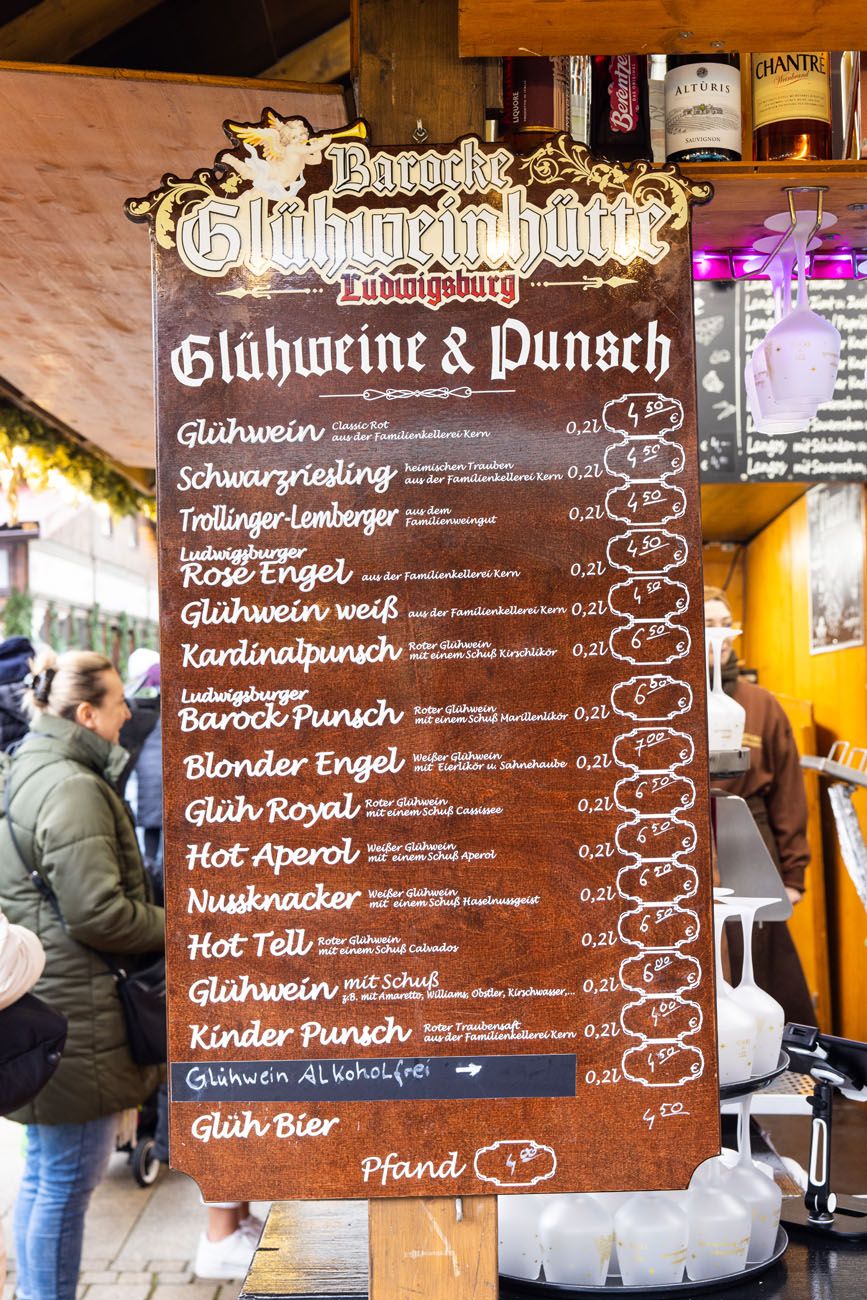 LIQUORE
Berentzen
ALTÙRIS
SAUVIGNON
CHANTRÉ
Weinbrand
Barocke
Glühweinhütte
Ludwigsburg
Glühweine & Punsch
Glühwein Classic Rot aus der Familienkellerei Kern 0,2l 4,50
Schwarzriesling heimischen Trauben aus der Familienkellerei Kern 0,2l 4,50 €
Trollinger-Lemberger aus dem Familienweingut 0,2l 4,50 €
Ludwigsburger
Rosé Engel aus der Familienkellerei Kern 0,2l 4,50 €
Glühwein weiß aus der Familienkellerei Kern 0,2l 4,50 €
Kardinalpunsch Roter Glühwein mit einem Schuß Kirschlikör 0,2l 6,50 €
Ludwigsburger
Barock Punsch Roter Glühwein mit einem Schuß Marillenlikör 0,2l €
Blonder Engel Weißer Glühwein mit Eierlikör u. Sahnehaube 0,2l 7,00 €
Glüh Royal Roter Glühwein mit einem Schuß Cassissee 0,2l 6,50 €
Hot Aperol Weißer Glühwein mit einem Schuß Aperol 0,2l 6,50 €
Nussknacker Weißer Glühwein mit einem Schuß Haselnussgeist 0,2l €
Hot Tell Roter Glühwein mit einem Schuß Calvados 0,2l 6,50 €
Glühwein mit Schuß z.B. mit Amaretto, Williams, Obstler, Kirschwasser,... 0,2l 6,00 €
Kinder Punsch Roter Traubensaft aus der Familienkellerei Kern 0,2l 4,00 €
Glühwein Alkoholfrei → 0,2l 4,50 €
Glüh Bier 4,50
Pfand 4,00